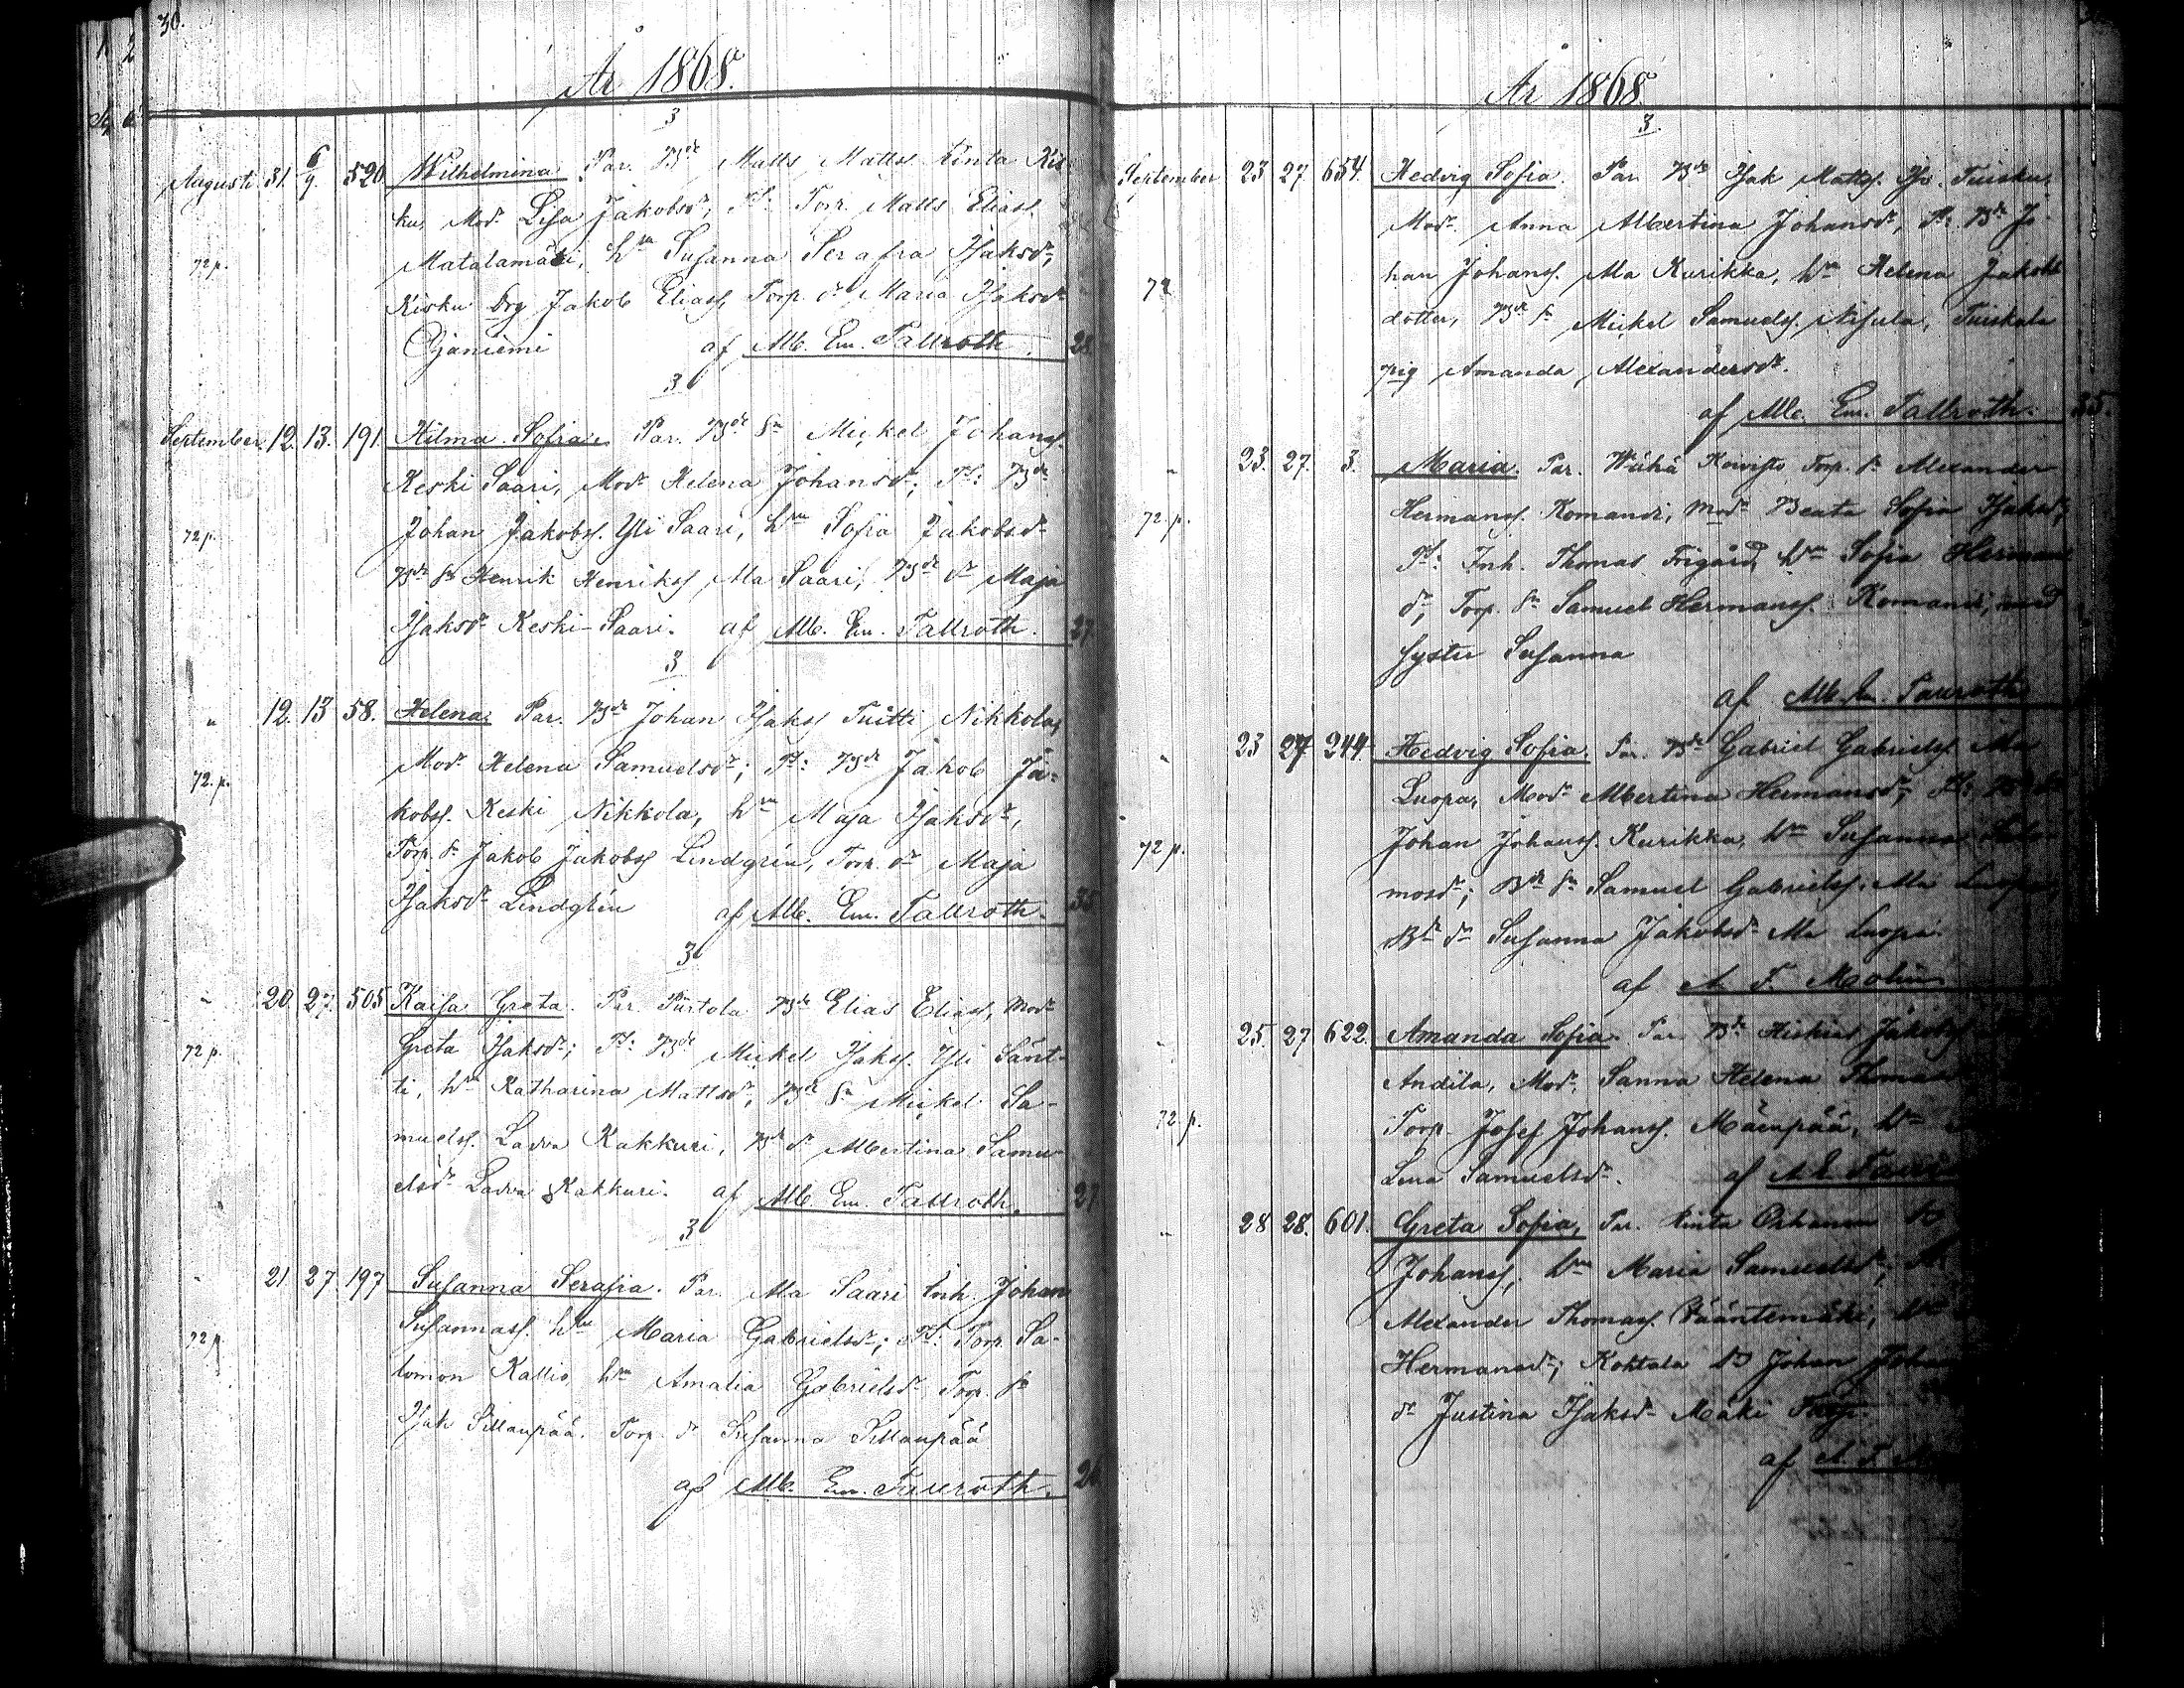 30.
År 1868.
3
Augusti 31. 6/9. 520 Wilhelmina. Far. Bde Matts Matts. Rinta Kis-
ku, Modr Lisa Jakobsdr, Ft: Torp. Matts Eliass.
72 p. Matalamäki, hn Susanna Serafia Isaksdr,
Kisku Drg Jakob Eliass, Torp. dr Maria Isaksdr
Ojaniemi af Alb. Em. Tallroth. 28
3
September. 12. 13. 191. Hilma Sofia. Far. Bde Sn Mickel Johanss.
Keski Saari, Modr Helena Johansdr; Ft: Bde
72 p. Johan Jakobss. Yli Saari, hn Sofia Jakobsdr
Bde Sn Henrik Henrikss Ala Saari, Bde dr Maja
Isaksdr Keski-Saari. af Alb. Em. Tallroth. 27
3
" 12. 13 58. Helena. Far. Bde Johan Isaks. Tuitti Nikkola,
Modr Helena Samuelsdr; Ft: Bde Jakob Ja-
72. p. kobss. Keski Nikkola, hn Maja Isaksdr,
Torp. Sn Jakob Jakobss Lindgrén, Torp. dr Maja
Isaksdr Lindgrén af Alb. Em. Tallroth. 35
3
" 20. 27. 505 Kaisa Greta. Far Purtola Bde Elias Eliass, Modr
72 p. Greta Isaksdr; Ft: Bde Mickel Isakss. Yli Sänt-
ti, hn Katharina Mattsdr, Bde Sn Mickel Sa-
muelss. Ladva Kakkuri, Bde dr Albertina Samu-
elsdr Ladva Kakkuri. af Alb. Em. Tallroth. 27
3
" 21. 27. 197 Susanna Serafia. Far. Ala Saari Inh. Johan
72 p Susannass. hn Maria Gabrielsdr; Ft: Torp. Sa-
lomon Kallio, hn Amalia Gabrielsdr Torp. Sn
Isak Sillanpää. Torp. dr Susanna Sillanpää
af Alb. Em. Tallroth. 26
År 1868.
3
September 23 27. 654. Hedvig Sofia. Far. Bde Isak Matts. Tuisku,
Modr. Anna Albertina Johansdr, Ft: Bde Jo-
72 han Johanss. Ala Kurikka, hn Helena Jakobs
dotter, Bde Sn Mickel Samuelss. Nisula, Tuiskula
pig Amanda Alexandersdr.
af Alb. Em. Tallroth. 35.
" 23. 27. 3. Maria. Far. Wähä Koivisto Torp. Sn Alexander
72. p. Hermanss. Komansi, Modr Beata Sofia Isaksdr,
Ft: Inh. Thomas Frigård, hn Sofia Hermans
dr, Torp. Sn Samuel Hermanss. Komansi, med
syster Susanna
af Alb. Em. Tallroth
" 23 27 244. Hedvig Sofia. Far. Bde Gabriel Gabrielss. Ala
Luopa, Modr Albertina Hermansdr; Ft:
72 p. Johan Johanss. Kurikka, hn Susanna Salo-
mosdr; Bde Sn Samuel Gabrielss. Ala Luopa,
Bde dr Susanna Jakobsdr Ala Luopa.
af A. F. Molin
" 25. 27 622. Amanda Sofia. Far. Bde Hiskias Jakobs
Andila, Modr. Sanna Helena Thomas
72. p. Torp. Josef Johanss. Mäenpää, hn
Lena Samuelsdr. af A. E. Tallr
" 28 28. 601. Greta Sofia, Far. Rinta
Johanss, hn Maria Samuelsdr;
Alexander Thomass. Vääntemäki, hn
Hermansdr; Kohtala Johan Johan
dr Justina Isaksdr Mäki Torp.
af A. F. M